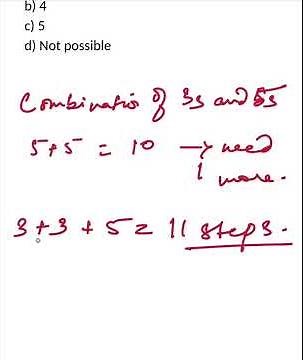 b) 4
c) 5
d) Not possible
Combinatio of 3s and 5s
5+5 = 10 → need
1 more.
3+3 + 5 = 11 steps.